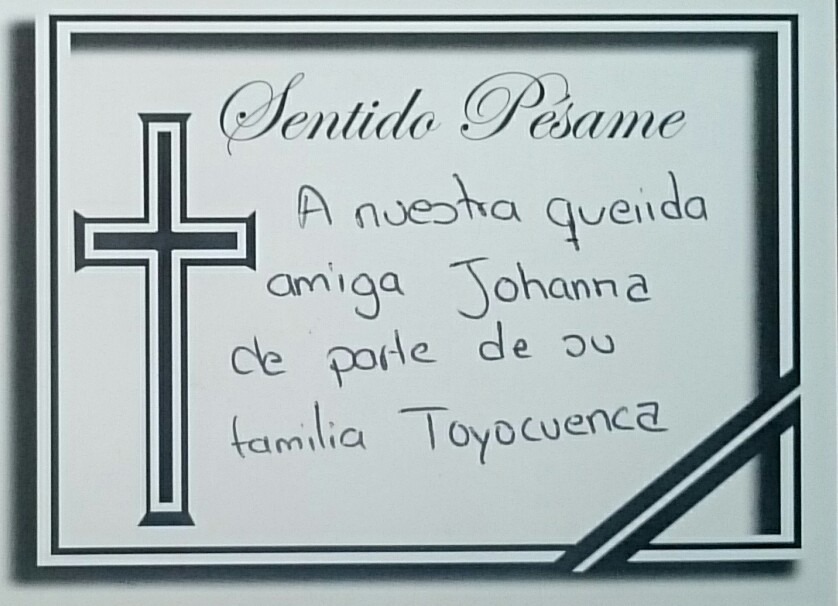 Sentido Pésame
A nuestra querida
amiga Johanna
de parte de su
familia Toyocuenca